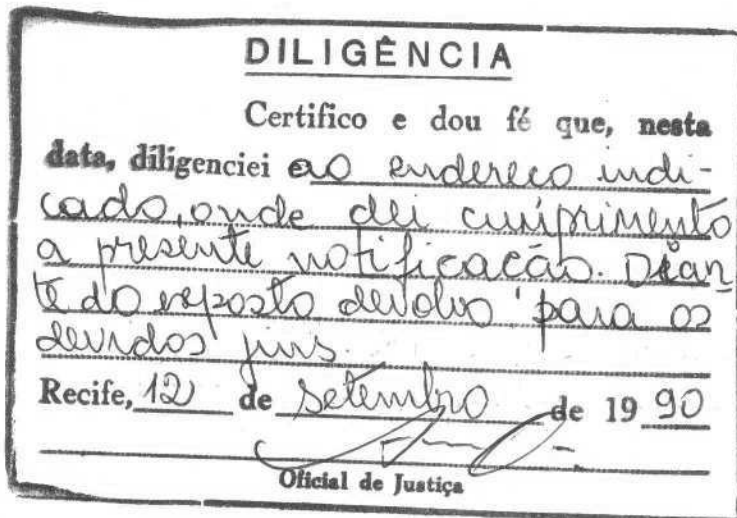 DILIGÊNCIA
Certifico e dou fé que, nesta
data, diligenciei ao endereço indi-
cado, onde dei cumprimento
a presente notificação. Dian
te do exposto devolvo para os
devidos fins.
Recife, 12 de setembro de 1990
Oficial de Justiça